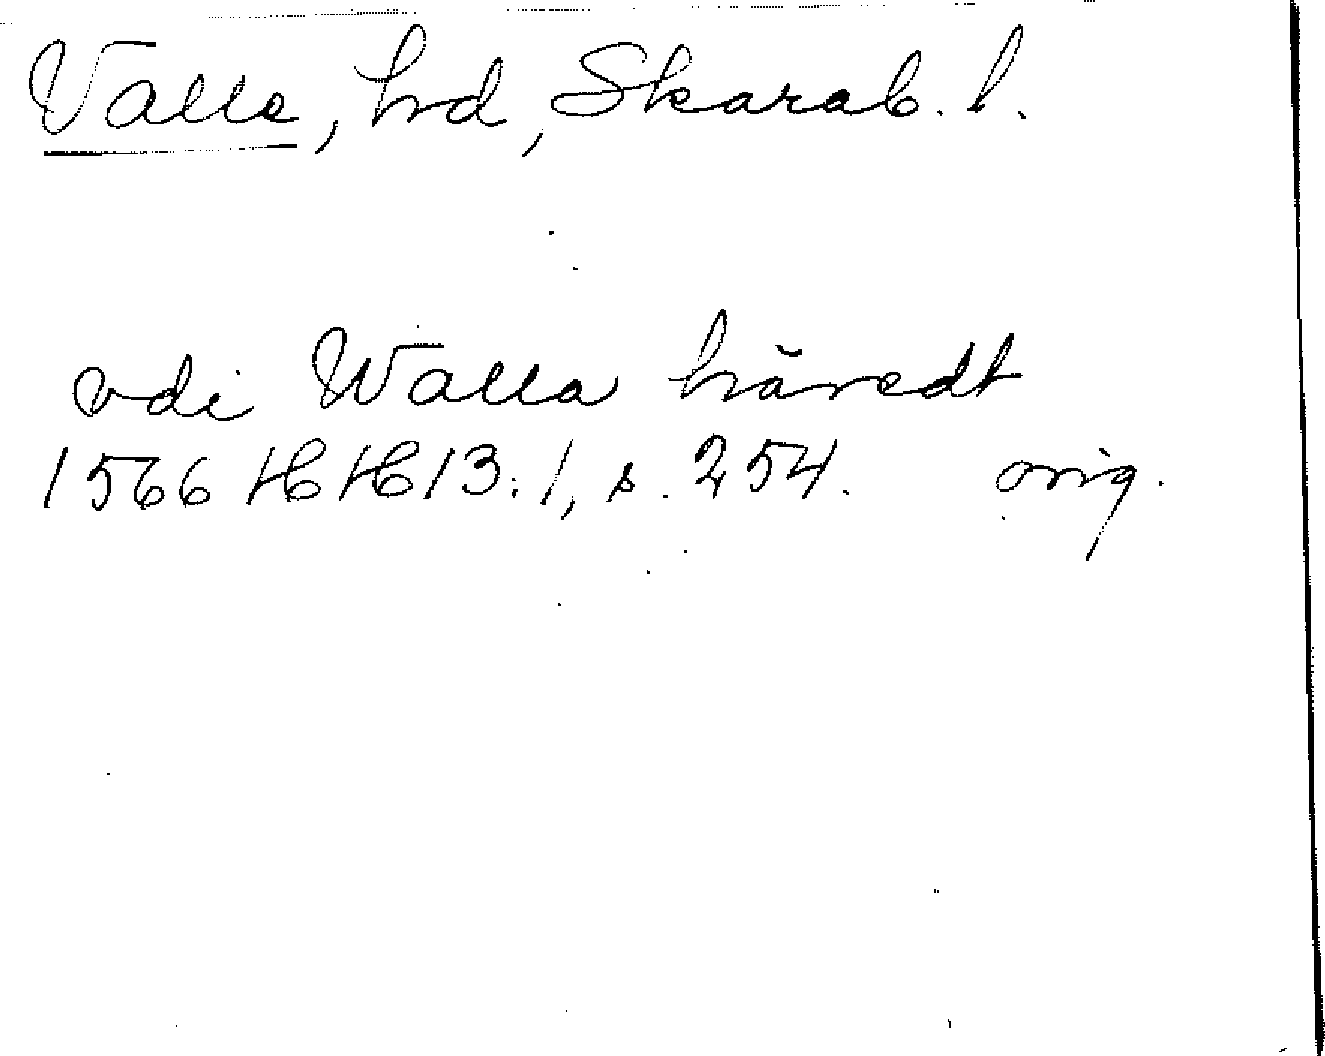 Valle, hd, Skarab. l.
vdi Walla häredt
1566 HH 13:1, s. 254. orig.